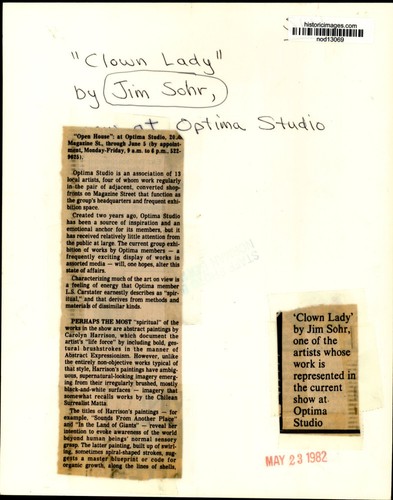 historicimages.com
nod13069
"Clown Lady"
by Jim Sohr,
at Optima Studio
"Open House": at Optima Studio,
Magazine St., through June 5 (by appoint-
ment, Monday-Friday, 9 a.m. to 6 p.m., 522-
9625).
Optima Studio is an association of 13
local artists, four of whom work regularly
in the pair of adjacent, converted shop-
fronts on Magazine Street that function as
the group's headquarters and frequent exhi-
bition space.
Created two years ago, Optima Studio
has been a source of inspiration and an
emotional anchor for its members, but it
has received relatively little attention from
the public at large. The current group exhi-
bition of works by Optima members — a
frequently exciting display of works in
assorted media — will, one hopes, alter this
state of affairs.
Characterizing much of the art on view is
a feeling of energy that Optima member
L.S. Carstater earnestly describes as "spir-
itual," and that derives from methods and
materials of dissimilar kinds.
PERHAPS THE MOST "spiritual" of the
works in the show are abstract paintings by
Carolyn Harrison, which document the
artist's "life force" by including bold, ges-
tural brushstrokes in the manner of
Abstract Expressionism. However, unlike
the entirely non-objective works typical of
that style, Harrison's paintings have ambig-
uous, supernatural-looking imagery emerg-
ing from their irregularly brushed, mostly
black-and-white surfaces — imagery that
somewhat recalls works by the Chilean
Surrealist Matta.
The titles of Harrison's paintings — for
example, "Sounds From Another Plane"
and "In the Land of Giants" — reveal her
intention to evoke awareness of the world
beyond human beings' normal sensory
grasp. The latter painting, built up of swirl-
ing, sometimes spiral-shaped strokes, sug-
gests a master blueprint or code for
organic growth, along the lines of shells,
'Clown Lady'
by Jim Sohr,
one of the
artists whose
work is
represented in
the current
show at
Optima
Studio
MAY 23 1982